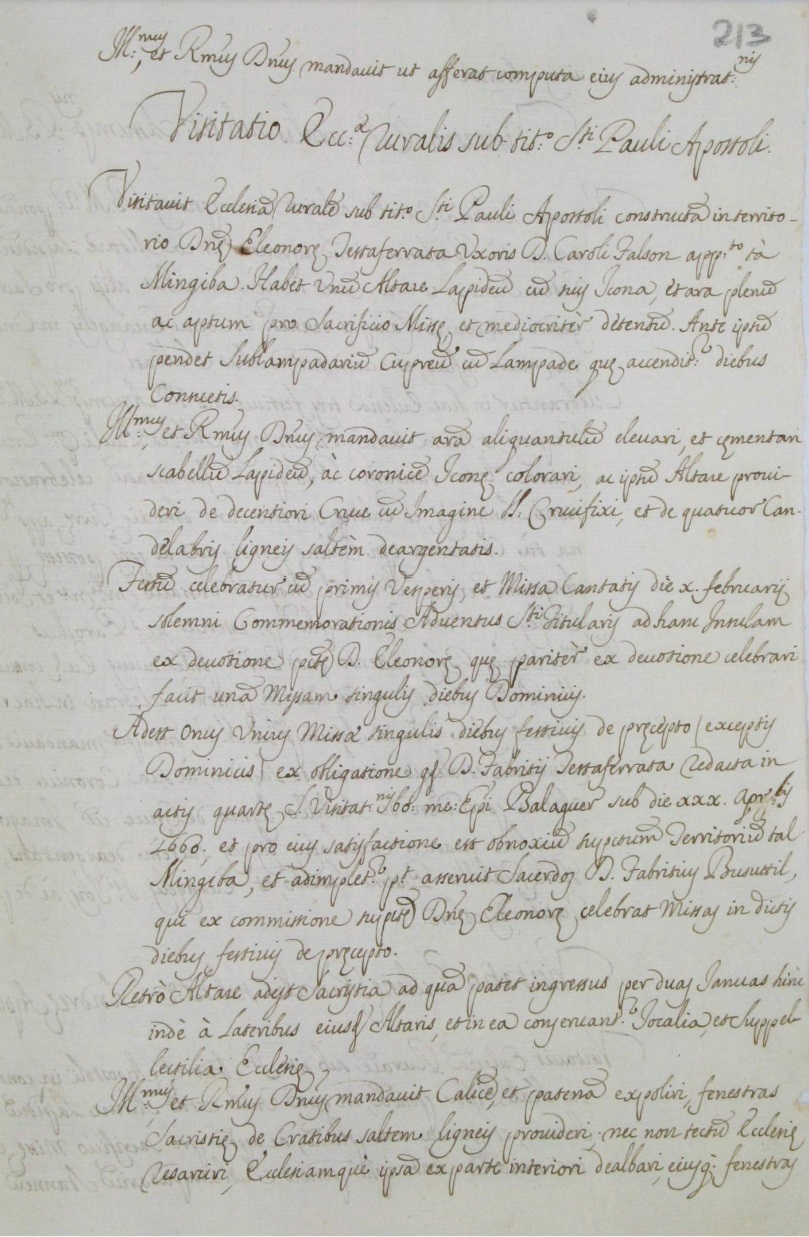 213
Ill:mus, et Rmus Dnus mandavit ut afferat computa eius administrat:nis
Visitatio Ecc:æ Ruralis sub tit:o S:ti Pauli Apostoli.
Visitavit Ecclesiã Ruralẽ sub tit:o S:ti Pauli Apostoli constructã in territo-
rio Dnę Eleonorę Testaferrata Uxoris D. Caroli Falson app:to tà
Mingiba. Habet unũ Altare Lapideũ cũ suis Icona, et ara plenũ
ac aptum pro Sacrificio Missę, et mediocritèr détentũ. Ante ipsũ
pendet Sublampadariũ Cupreũ cũ Lampade quę accendit:r diebus
Consuetis.
Ill:mus, et Rmus Dnus mandavit arã aliquantulũ elevari, et cęmentari
scabellũ Lapideũ, àc coronicẽ Iconę colorari, ac ipsũ Altare provi-
deri de decentiori Cruce cũ Imagine SS. Crucifixi, et de quatuor Can-
delabris ligneis saltèm deargentatis.
Festũ celebratur cũ primis Vesperis, et Missa Cantatis die x. februarij
solemni Commemorationis Adventus S:ti Titularis ad hanc Insulam
ex devotione pctę D. Eleonorę, quę paritèr ex devotione celebrari
facit unã Missam singulis diebus Dominicis.
Adest Onus Unius Missæ singulis diebus festivis de pręcepto (exceptis
Dominicis) ex obligatione qd. D. Fabritij Testaferrata redacta in
actis quartę S. Visitat:nis bo: me: Epi Balaguer sub die xxx. Apr:lis
1666. et pro eius satisfactione est obnoxiũ supctum Territoriũ tal
Mingiba, et adimplet:r, pt asseruit Sacerdos D. Fabritius Busuttil,
qui ex commissione supctę Dnę Eleonorę celebrat Missas in dictis
diebus festivis de pręcepto.
Retrò Altare adest Sacristia ad quã patet ingressus per duas Ianuas hinc
indè à Lateribus eiusd. Altaris, et in ea conservant:r Iocalia, et suppel-
lectilia Ecclesię.
Ill:mus, et Rmus Dnus mandavit Calicẽ, et patenã expoliri, fenestras
Sacristię de Cratibus saltem ligneis provideri, nec non tectũ Ecclesię
resarciri, Ecclesiamquè ipsã ex parte interiori dealbari, eiusq; fenestras